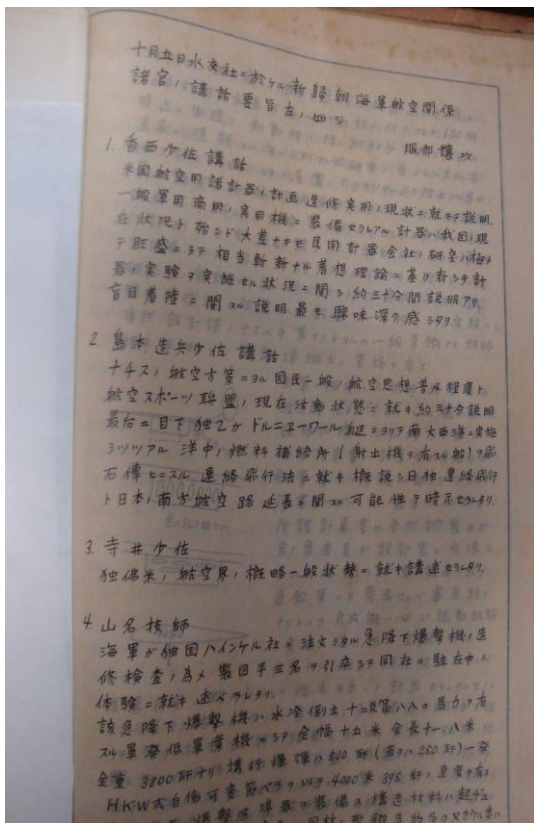 十月五日水交社ニ於ケル新歸朝海軍航空関係
諸官ノ講話要旨左ノ如シ
服部譲次
1. 香西少佐講話
米国航空用諸計器ノ計画造修実用ノ現状ニ就キテ説明
一般軍用商用ノ実用機ニ装備セラレアル計器ハ我国ノ現
在状況ト殆ンド大差ナキモ民間計器会社ノ研究ハ極メ
テ旺盛ニシテ相当斬新ナル着想理論ニ基ク新シキ計
器ノ実験ヲ実施セル状況ニ関シ約三十分間説明アリ
盲目着陸ニ関スル説明最モ興味深ク感ジタリ
2. 島本造兵少佐講話
ナチスノ航空方策ニヨル国民一般ノ航空思想普及程度ト
航空スポーツ聯盟ノ現在活動状態ニ就キ約三十分説明
最后ニ目下独乙ガドルニヱーワール艇ニヨリテ南大西洋ニ実施
シツツアル洋中ノ燃料補給所(射出機ヲ有スル船)ヲ飛
石傳ヒニスル連絡飛行法ニ就キ概説シ日独連絡飛行
ト日本ノ南方航空路延長ニ関スル可能性ヲ暗示セラレタリ
3. 寺井少佐
独佛米ノ航空界ノ概略一般状勢ニ就キ講述セラレタリ
4. 山名技師
海軍ガ独国ハインケル社ニ注文シタル急降下爆撃機ノ造
修検査ノ為メ製図手三名ヲ引卒シテ同社ニ駐在中ノ
体験ニ就キ述ベラレタリ
該急降下爆撃機ハ水冷倒立十二気筒八八〇馬力ヲ有
スル単発低単葉機ニシテ全幅十五米全長十一.八米
全重 3800 瓩ナリ 携行爆弾ハ 500 瓩(若クハ 250 瓩)一発
HKW式自働可変節ペラヲ以テ 4000 米 395 粁ノ速度ヲ有ス
爆撃照準器ヲ装備ス構造材料ハ超ヂュ